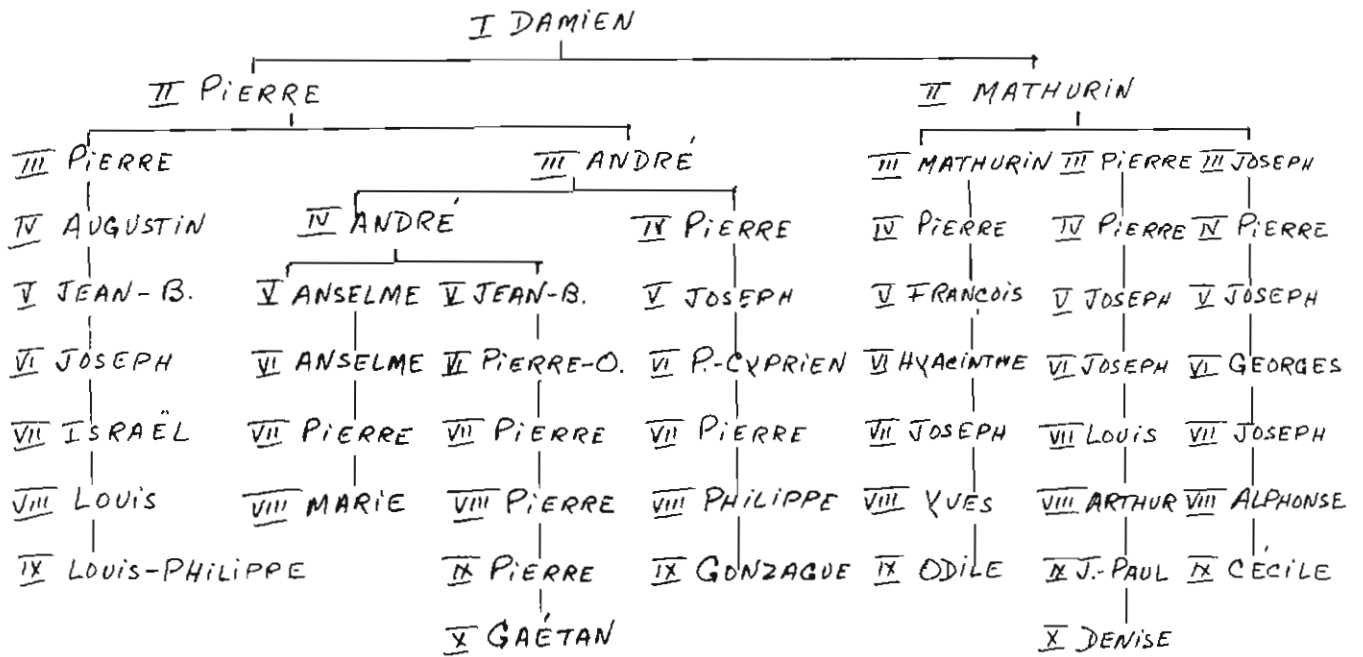 I DAMIEN
II PIERRE II MATHURIN
III PIERRE III ANDRÉ III MATHURIN III PIERRE III JOSEPH
IV AUGUSTIN IV ANDRÉ IV PIERRE IV PIERRE IV PIERRE IV PIERRE
V JEAN-B. V ANSELME V JEAN-B. V JOSEPH V FRANCOIS V JOSEPH V JOSEPH
VI JOSEPH VI ANSELME VI PIERRE-O. VI P.-CYPRIEN VI HYACINTHE VI JOSEPH VI GEORGES
VII ISRAËL VII PIERRE VII PIERRE VII PIERRE VII JOSEPH VII LOUIS VII JOSEPH
VIII LOUIS VIII MARIE VIII PIERRE VIII PHILIPPE VIII YVES VIII ARTHUR VIII ALPHONSE
IX LOUIS-PHILIPPE IX PIERRE IX GONZAGUE IX ODILE IX J.-PAUL IX CÉCILE
X GAÉTAN X DENISE